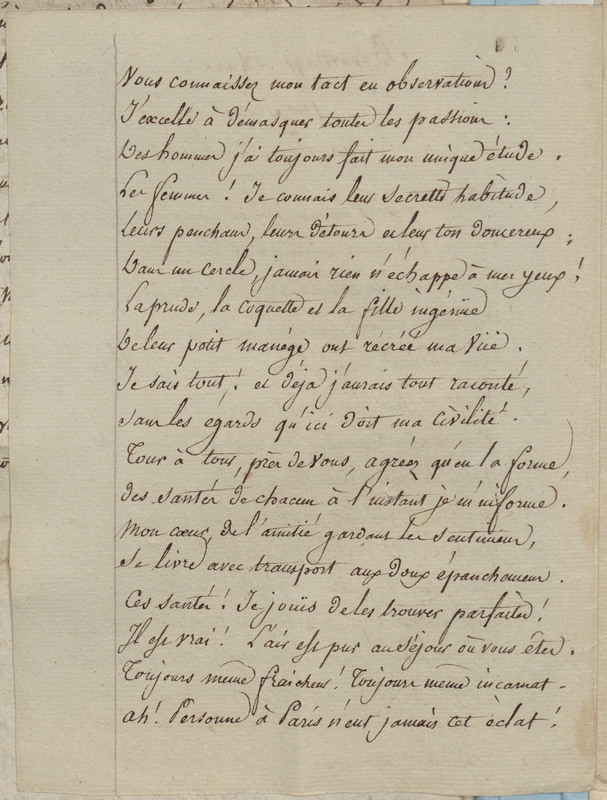 Vous connaissez mon tact en observations !
J'excelle à démasquer toutes les passions :
Des hommes j'ai toujours fait mon unique étude .
Les femmes ! Je connais leur secrette habitude,
Leurs penchans, leurs détours et leur ton doucereux ;
Dans un cercle, jamais rien n'échappe à mes yeux !
La prude, la coquette et la fille ingénüe
De leur petit manége ont récréé ma vüe .
Je sais tout ! et déjà j'aurais tout raconté,
sans les egards qu'ici doit ma civilité .
Tour à tour, près de vous, agréez qu'en la forme,
des santés de chacun à l'instant je m'informe .
Mon cœur, de l'amitié gardant les sentimens,
se livre avec transport aux doux épanchemens .
Ces santés ! Je jouïs de les trouver parfaites !
Il est vrai ! L'air est pur au séjour où vous êtes .
Toujours même fraicheur ! Toujours même incarnat .
ah ! Personne à Paris n'eut jamais cet éclat !